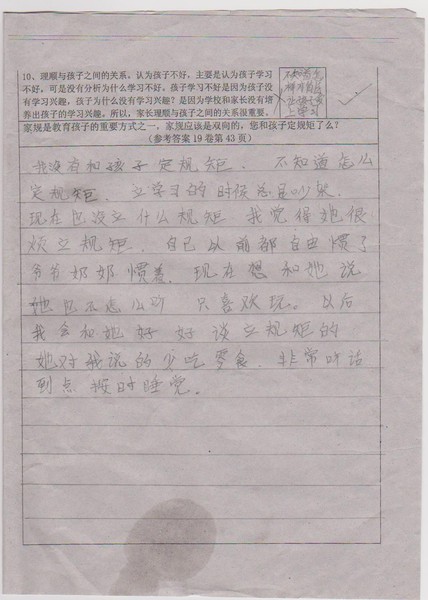 10、理顺与孩子之间的关系。认为孩子不好，主要是认为孩子学习
不好，可是没有分析为什么学习不好。孩子学习不好是因为孩子没
有学习兴趣，孩子为什么没有学习兴趣？是因为学校和家长没有培
养出孩子的学习兴趣。所以，家长理顺与孩子之间的关系很重要。
家规是教育孩子的重要方式之一，家规应该是双向的，您和孩子定规矩了么？
（参考答案 19 卷第 43 页）
不知道怎么
上学习
我没有和孩子定规矩. 不知道怎么
定规矩. 立学习的时候总是吵架.
现在也没立什么规矩 我觉得她很
烦立规矩. 自己以前都自由惯了
爷爷奶奶惯着. 现在想和她说
她也不怎么听 只喜欢玩。以后
我会和她好好谈立规矩的
她对我说的少吃零食. 非常听话
到点按时睡觉。